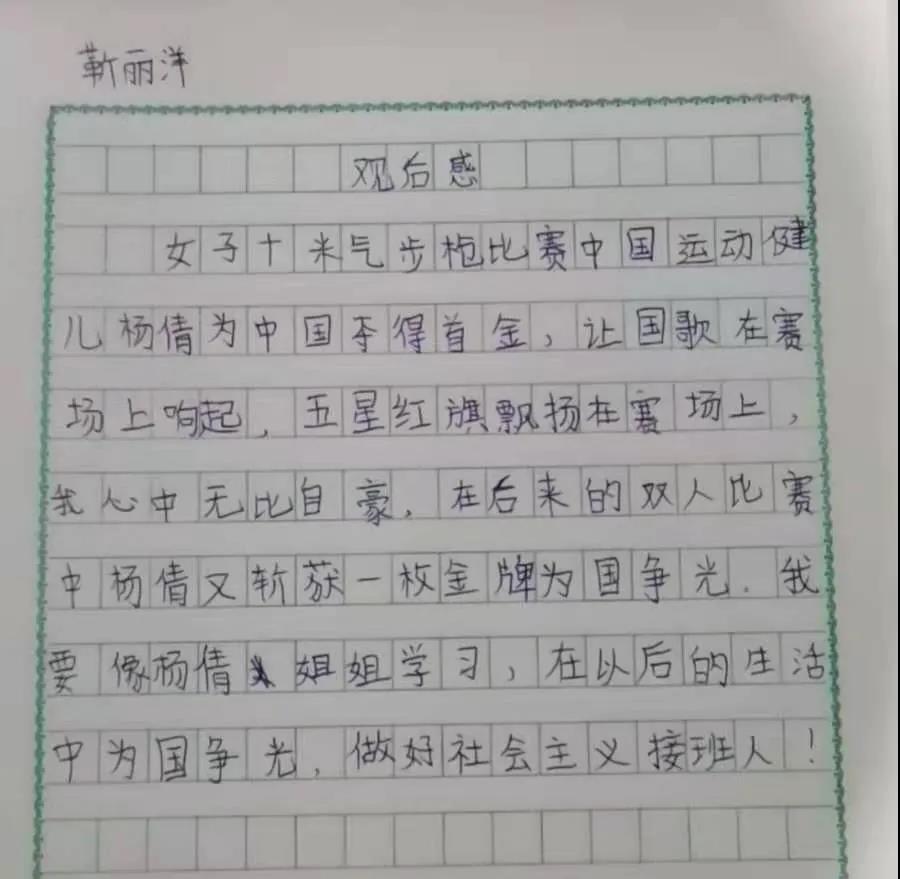 靳丽洋
观后感
女子十米气步枪比赛中国运动健
儿杨倩为中国夺得首金,让国歌在赛
场上响起,五星红旗飘扬在赛场上,
我心中无比自豪,在后来的双人比赛
中杨倩又斩获一枚金牌为国争光.我
要像杨倩姐姐学习,在以后的生活
中为国争光,做好社会主义接班人!